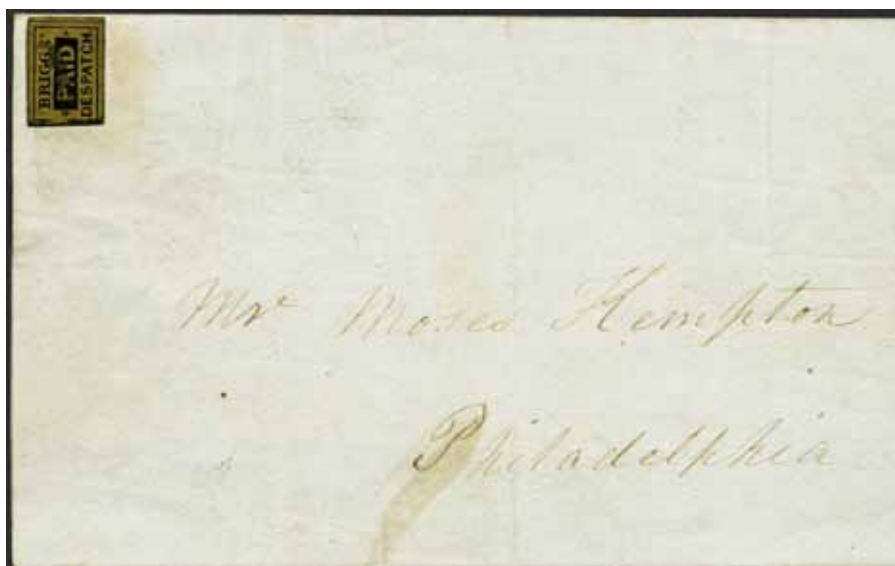 BRIGGS'
PAID
DESPATCH
Mr Moses Kempton
Philadelphia